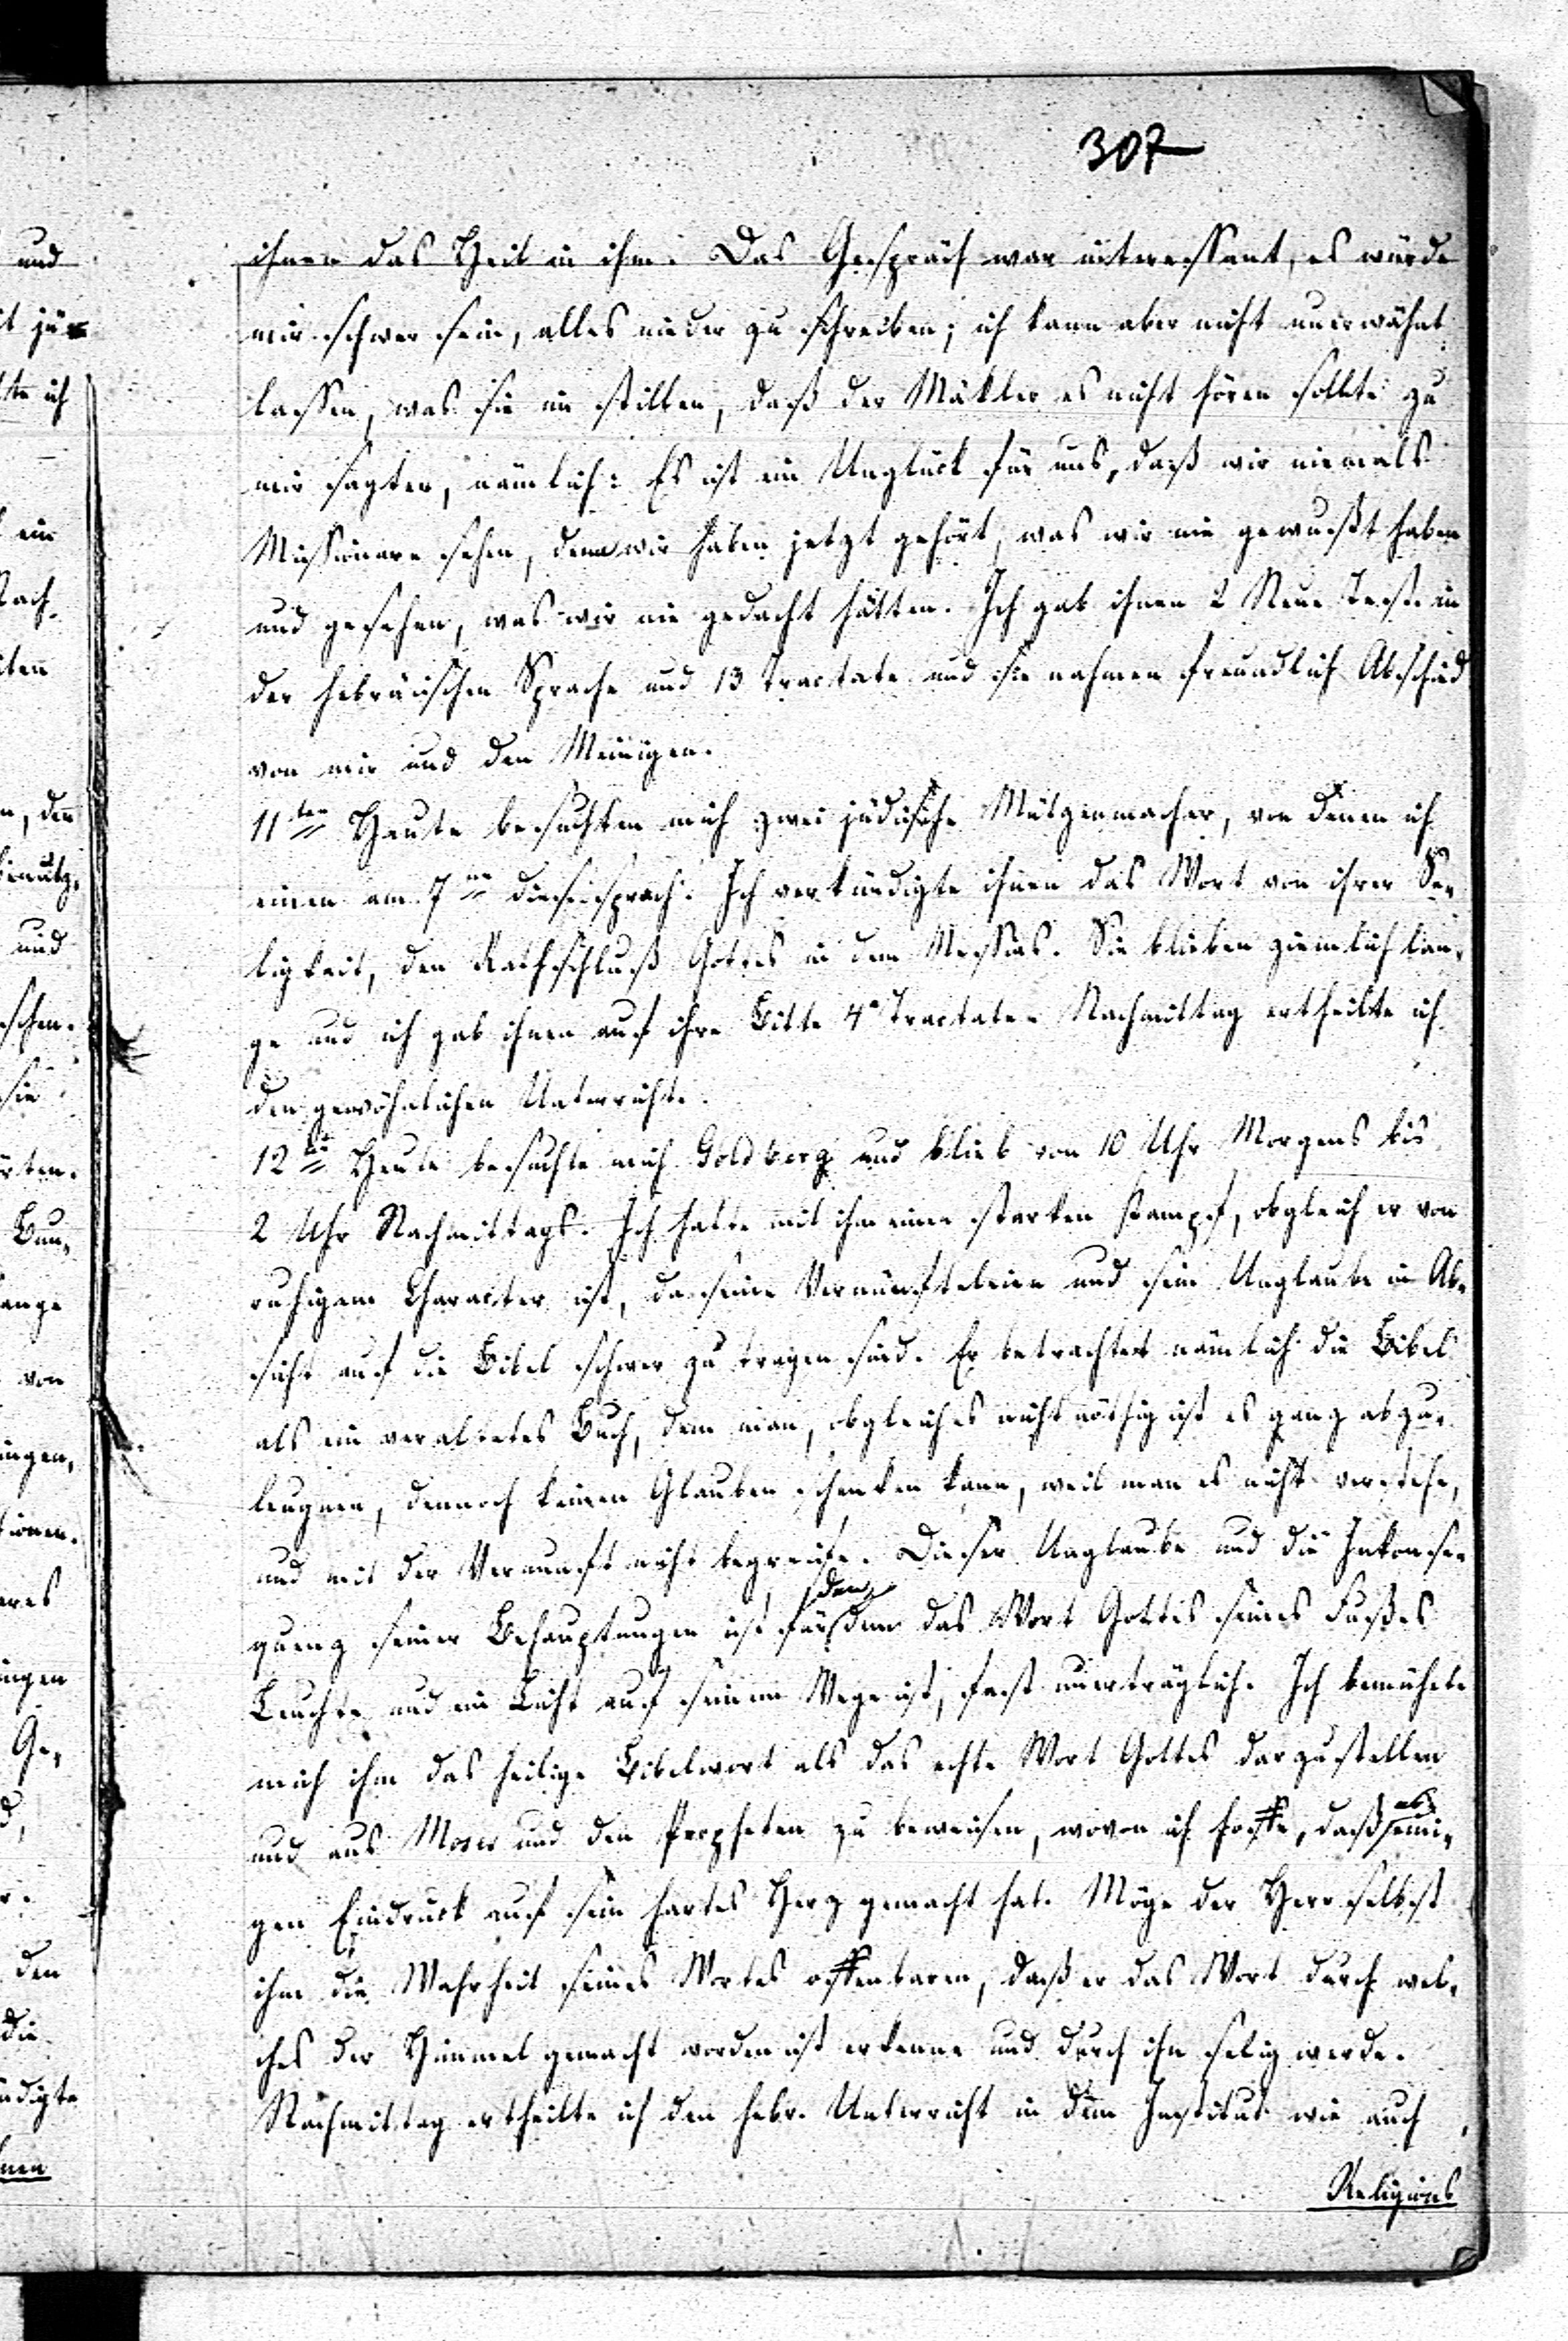 307
ihnen das Heil in ihm. Das Gespräch war interessant, es würde
mir schwer sein, alles nieder zu schreiben; ich kann aber nicht unerwähnt
lassen, was sie im stillen, daß der Mäkler es nicht hören sollte zu
mir sagten, nämlich: Es ist ein Unglück für uns, daß wir niemals
Missionare sehen, denn wir haben jetzt gehört, was wir nie gewußt haben
und gesehen, was wir nie gedacht hätten. Ich gab ihnen 2 Neue Test. in
der hebräischen Sprache und 13 Tractate und sie nahmen freundlich Abschied
von mir und den Meinigen.
11ten Heute besuchten mich zwei jüdische Mützenmacher, von denen ich
einen am 7ten dieses sprach. Ich verkündigte ihnen das Wort von ihrer Se¬
ligkeit, den Rathschluß Gottes in dem Messias. Sie blieben ziemlich lan¬
ge und ich gab ihnen auf ihre Bitte 4 Tractate. Nachmittag ertheilte ich
den gewöhnlichen Unterricht.
12ten Heute besuchte mich Goldberg und blieb von 10 Uhr Morgens bis
2 Uhr Nachmittags. Ich hatte mit ihm einen starken Kampf, obgleich er von
ruhigem Character ist, da seine Vernünfteleien und sein Unglaube in Ab¬
sicht auf die Bibel schwer zu tragen sind. Er betrachtet nämlich die Bibel
als ein veraltetes Buch, dem man, obgleich es nicht nöthig ist es ganz abzu¬
leugnen, dennoch keinen Glauben schenken kann, weil man es nicht verstehe,
und mit der Vernunft nicht begreife. Dieser Unglaube und die Inkonse¬
quenz seiner Behauptungen ist für den dem das Wort Gottes seines Fußes
Leuchte und ein Licht auf seinem Wege ist, fast unerträglich. Ich bemühete
mich ihm das heilige Bibelwort als das echte Wort Gottes darzustellen
und aus Moses und den Propheten zu beweisen, wovon ich hoffe, daß es eini¬
gen Eindruck auf sein hartes Herz gemacht hat. Möge der Herr selbst
ihm die Wahrheit seines Wortes offenbaren, daß er das Wort durch wel¬
ches der Himmel gemacht worden ist erkenne und durch ihn selig werde.
Nachmittag ertheilte ich den hebr. Unterricht in dem Institut wie auch
Religions